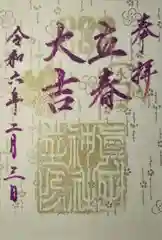 奉拝
立春
大吉
令和六年二月三日